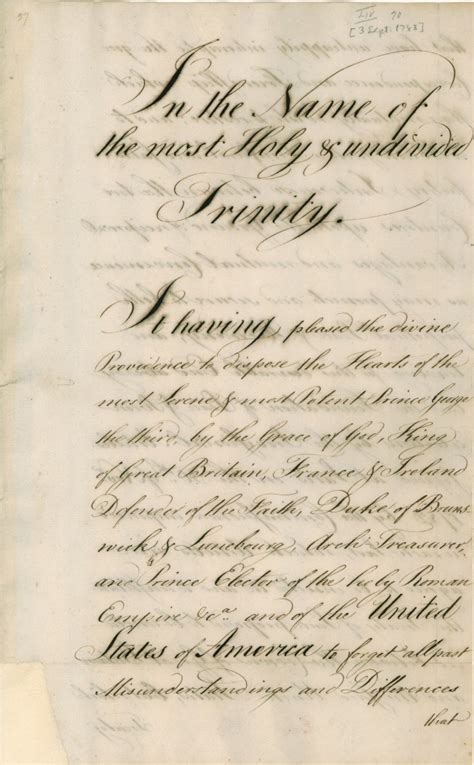 57
LIV 70
[3 Sept. 1783]
In the Name of
the most Holy & undivided
Trinity.
It having pleased the divine
Providence to dispose the Hearts of the
most Serene & most Potent Prince George
the third, by the Grace of God, King
of Great Britain, France & Ireland
Defender of the Faith, Duke of Bruns
wick & Lunebourg, Arch Treasurer,
and Prince Elector of the holy Roman
Empire &ca. and of the United
States of America to forget all past
Misunderstandings and Differences
that